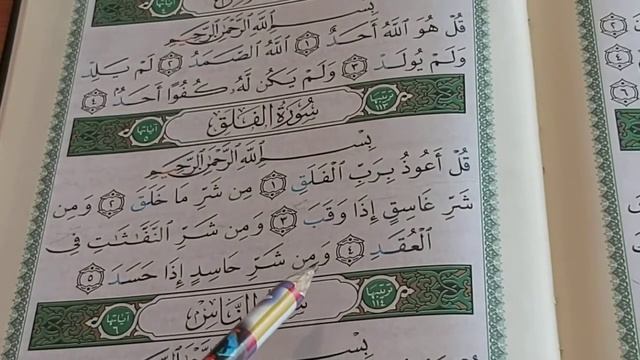 بِسْمِ ٱللَّهِ ٱلرَّحْمَٰنِ ٱلرَّحِيمِ
قُلْ هُوَ ٱللَّهُ أَحَدٌ ١ ٱللَّهُ ٱلصَّمَدُ ٢ لَمْ يَلِدْ
وَلَمْ يُولَدْ ٣ وَلَمْ يَكُن لَّهُۥ كُفُوًا أَحَدٌۢ ٤
ترتيبها ١١٣ سُورَةُ الْفَلَقِ آياتها ٥
بِسْمِ ٱللَّهِ ٱلرَّحْمَٰنِ ٱلرَّحِيمِ
قُلْ أَعُوذُ بِرَبِّ ٱلْفَلَقِ ١ مِن شَرِّ مَا خَلَقَ ٢ وَمِن
شَرِّ غَاسِقٍ إِذَا وَقَبَ ٣ وَمِن شَرِّ ٱلنَّفَّٰثَٰتِ فِى
ٱلْعُقَدِ ٤ وَمِن شَرِّ حَاسِدٍ إِذَا حَسَدَ ٥
ترتيبها ١١٤ النَّاسِ آياتها ٦
بِسْمِ